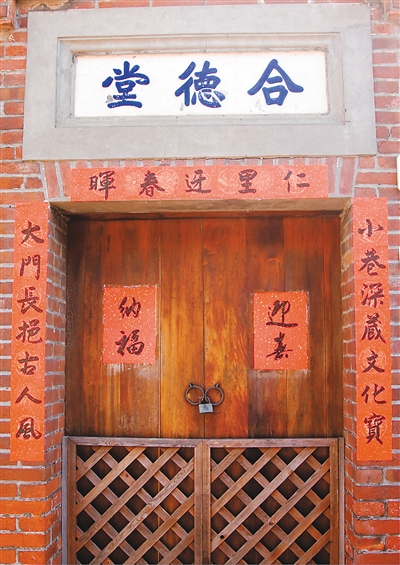 合德堂
仁里迓春暉
小巷深藏文化寶
大門長挹古人風
迎喜
納福